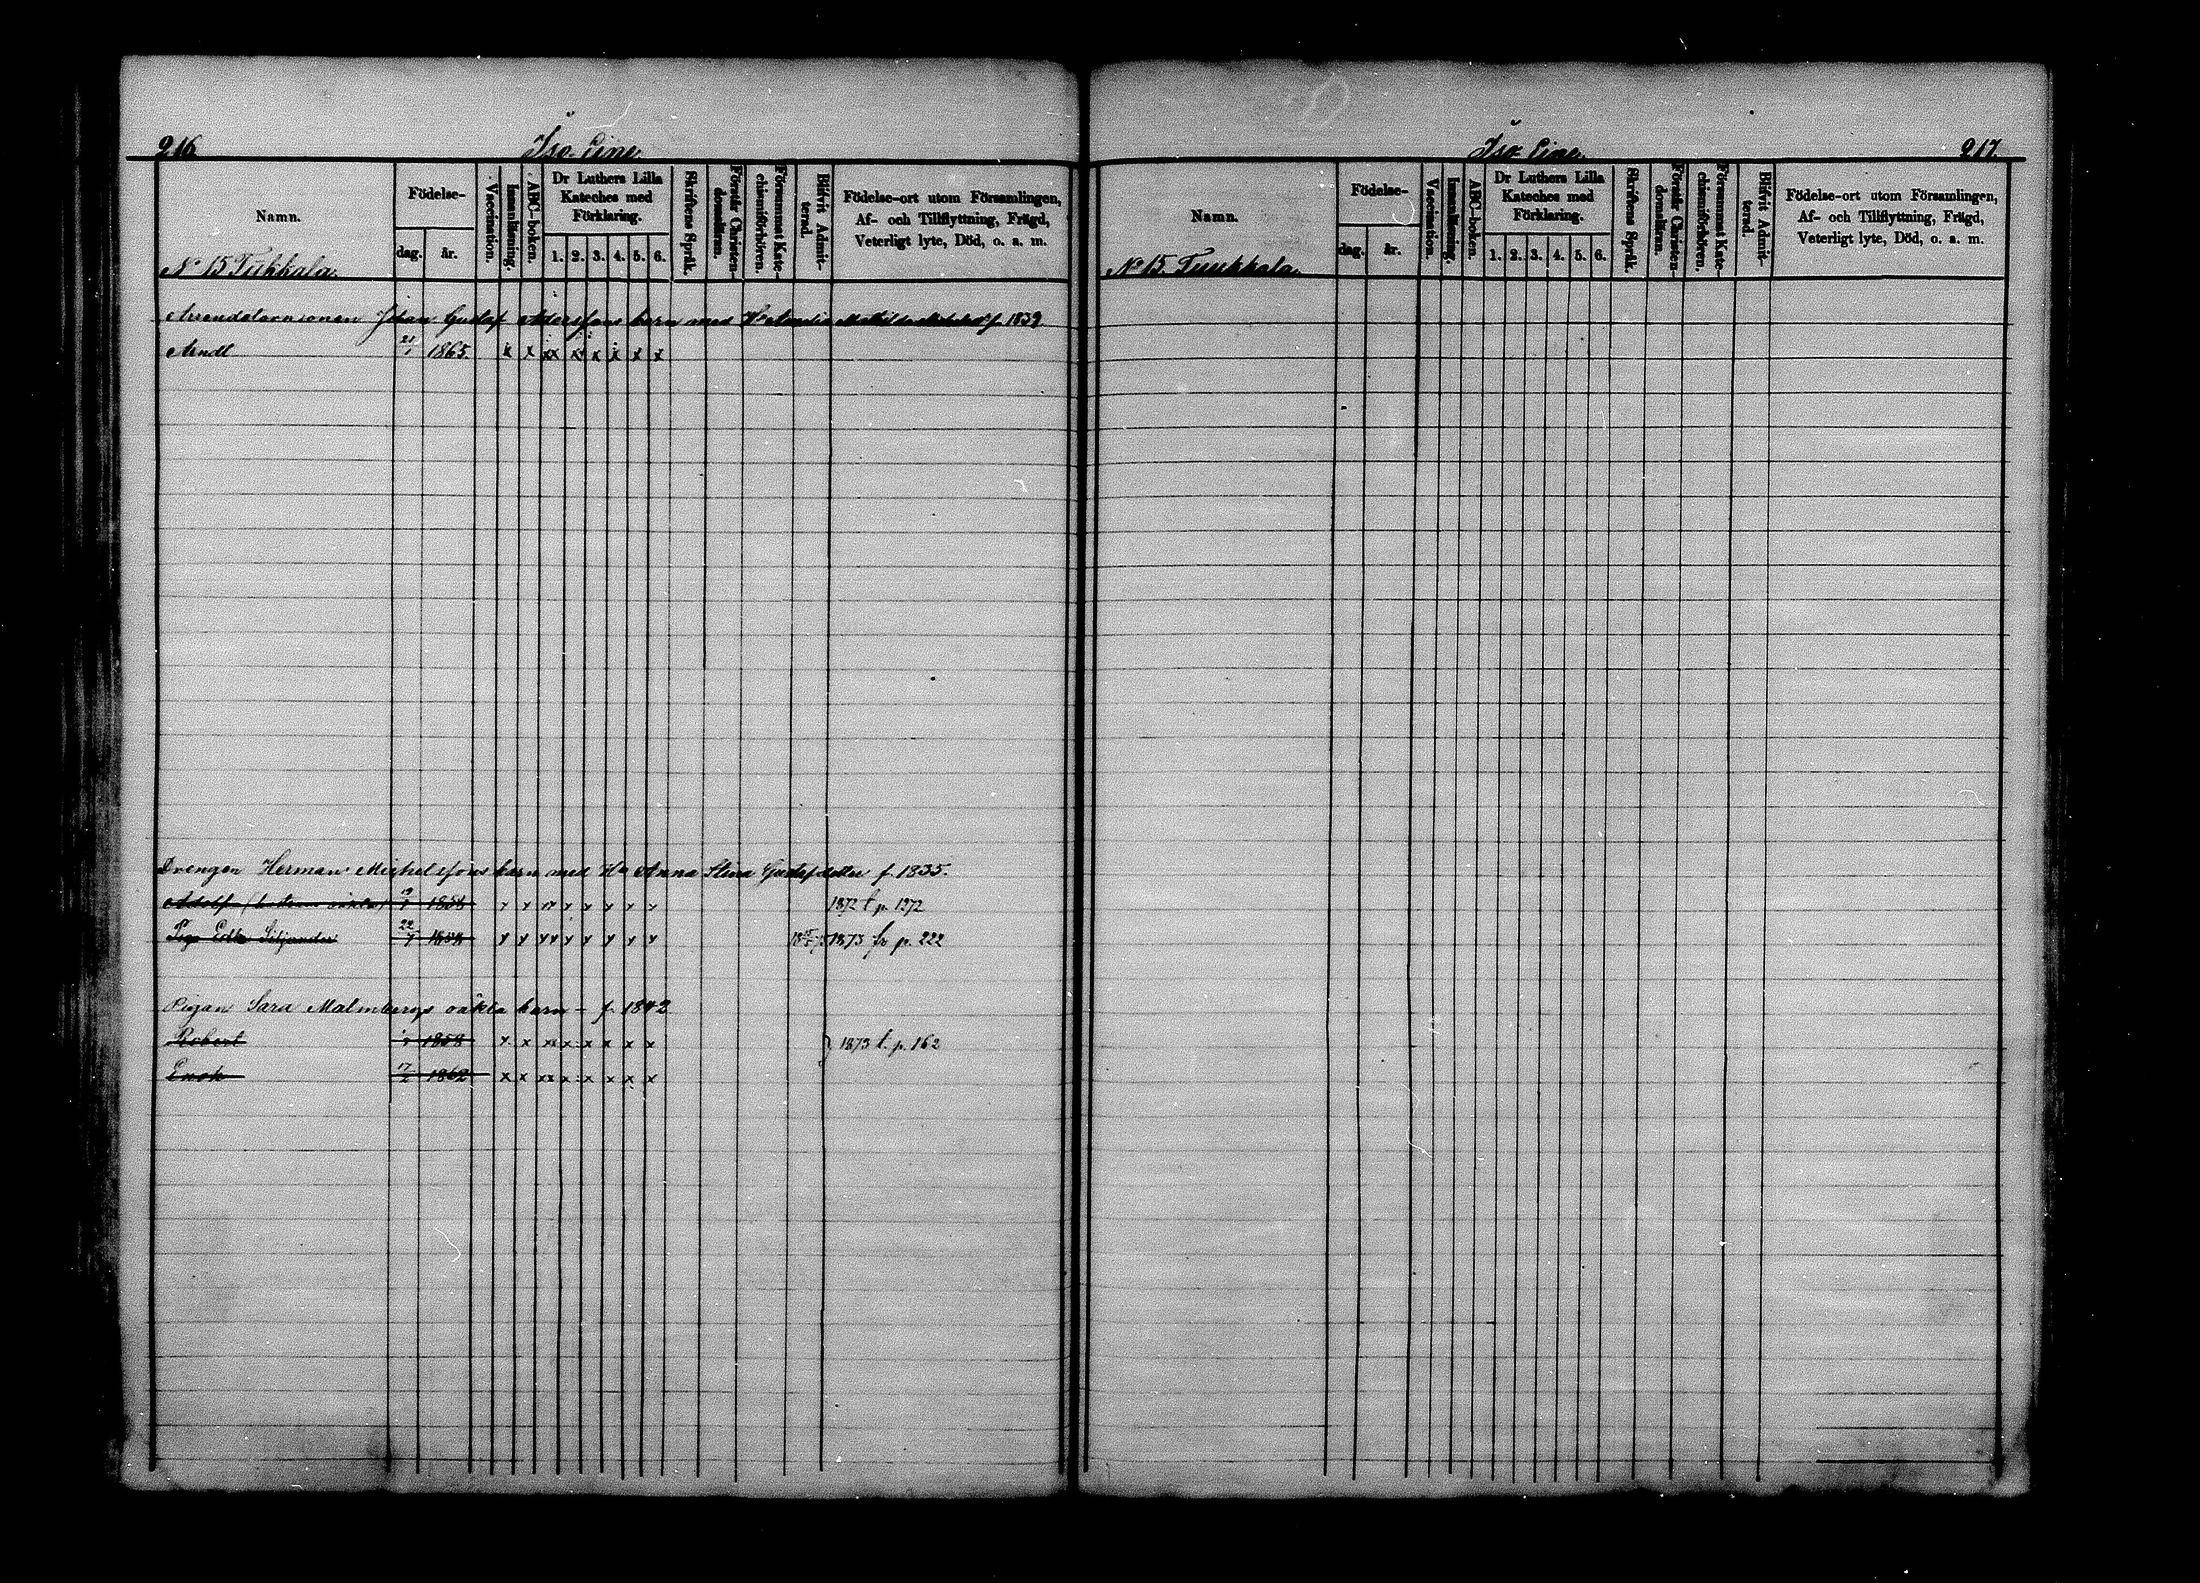 216
Iso Eine
Namn.
Födelse-
dag.
år.
Vaccination.
Innanläsning.
ABC-boken.
Dr Luthers Lilla Kateches med Förklaring.
1. 2. 3. 4. 5. 6.
Skriftens Språk.
Förstår Christendomsläran.
Försummat Katechismiförhören.
Blifvit Admitterad.
Födelse-ort utom Församlingen,
Af- och Tillflyttning, Frägd,
Veterligt lyte, Död, o. a. m.
No 15 Tukkala.
Johan Gustaf barn med Hu 1839
21/1 1865. x x xx x x x x x
Drengen Herman Michelsfons barn med Hu Anna Stina Gustafsdotter f. 1835.
Adolf 1872 t p. 1272
Siljander 22 1873 fr p. 222
Pigan Sara Malmbergs oäkta barn – f. 1842
Robert 1858 x x xx x x x x x 1873 t. p. 162
Enok 17/2 1862 x x xx x x x x x
Iso Eine.
217.
Namn.
Födelse-
dag.
år.
Vaccination.
Innanläsning.
ABC-boken.
Dr Luthers Lilla Kateches med Förklaring.
1. 2. 3. 4. 5. 6.
Skriftens Språk.
Förstår Christendomsläran.
Försummat Katechismiförhören.
Blifvit Admitterad.
Födelse-ort utom Församlingen,
Af- och Tillflyttning, Frägd,
Veterligt lyte, Död, o. a. m.
No 15. Tuukkala.